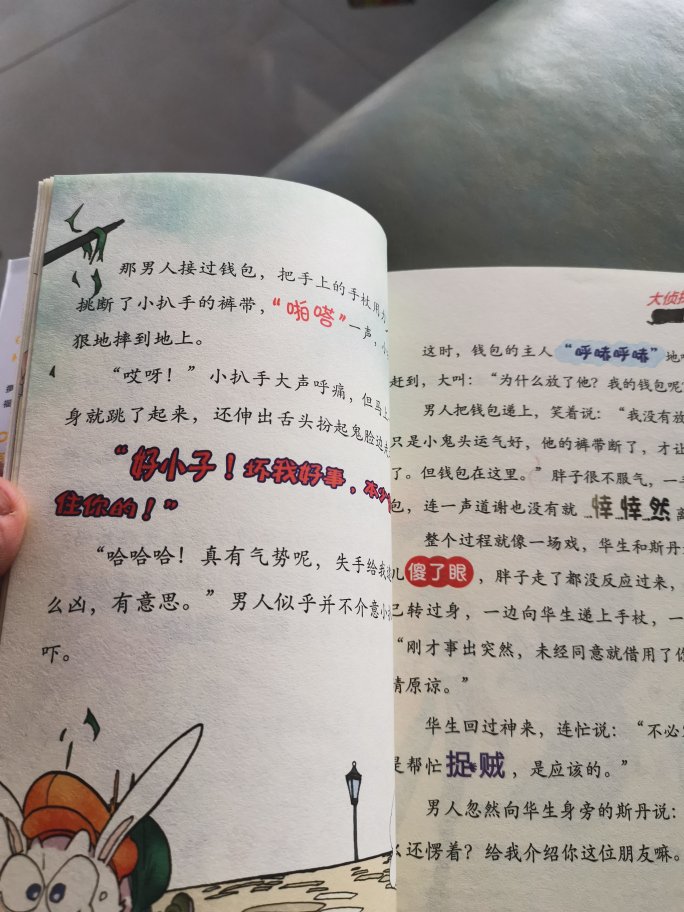 那男人接过钱包，把手上的手杖用
挑断了小扒手的裤带，“啪嗒”一声，小
狠地摔到地上。
“哎呀！”小扒手大声呼痛，但马上
身就跳了起来，还伸出舌头扮起鬼脸边
“好小子！坏我好事，本
住你的！”
“哈哈哈！真有气势呢，失手给我
么凶，有意思。”男人似乎并不介意小
吓。
大侦探
这时，钱包的主人“呼哧呼哧”地
赶到，大叫：“为什么放了他？我的钱包呢
男人把钱包递上，笑着说：“我没有放
只是小鬼头运气好，他的裤带断了，才让
了。但钱包在这里。”胖子很不服气，一
包，连一声道谢也没有就悻悻然离
整个过程就像一场戏，华生和斯丹
儿傻了眼，胖子走了都没反应过来，
已转过身，一边向华生递上手杖，一
“刚才事出突然，未经同意就借用了你
请原谅。”
华生回过神来，连忙说：“不必
是帮忙捉贼，是应该的。”
男人忽然向华生身旁的斯丹说：
么还愣着？给我介绍你这位朋友嘛。